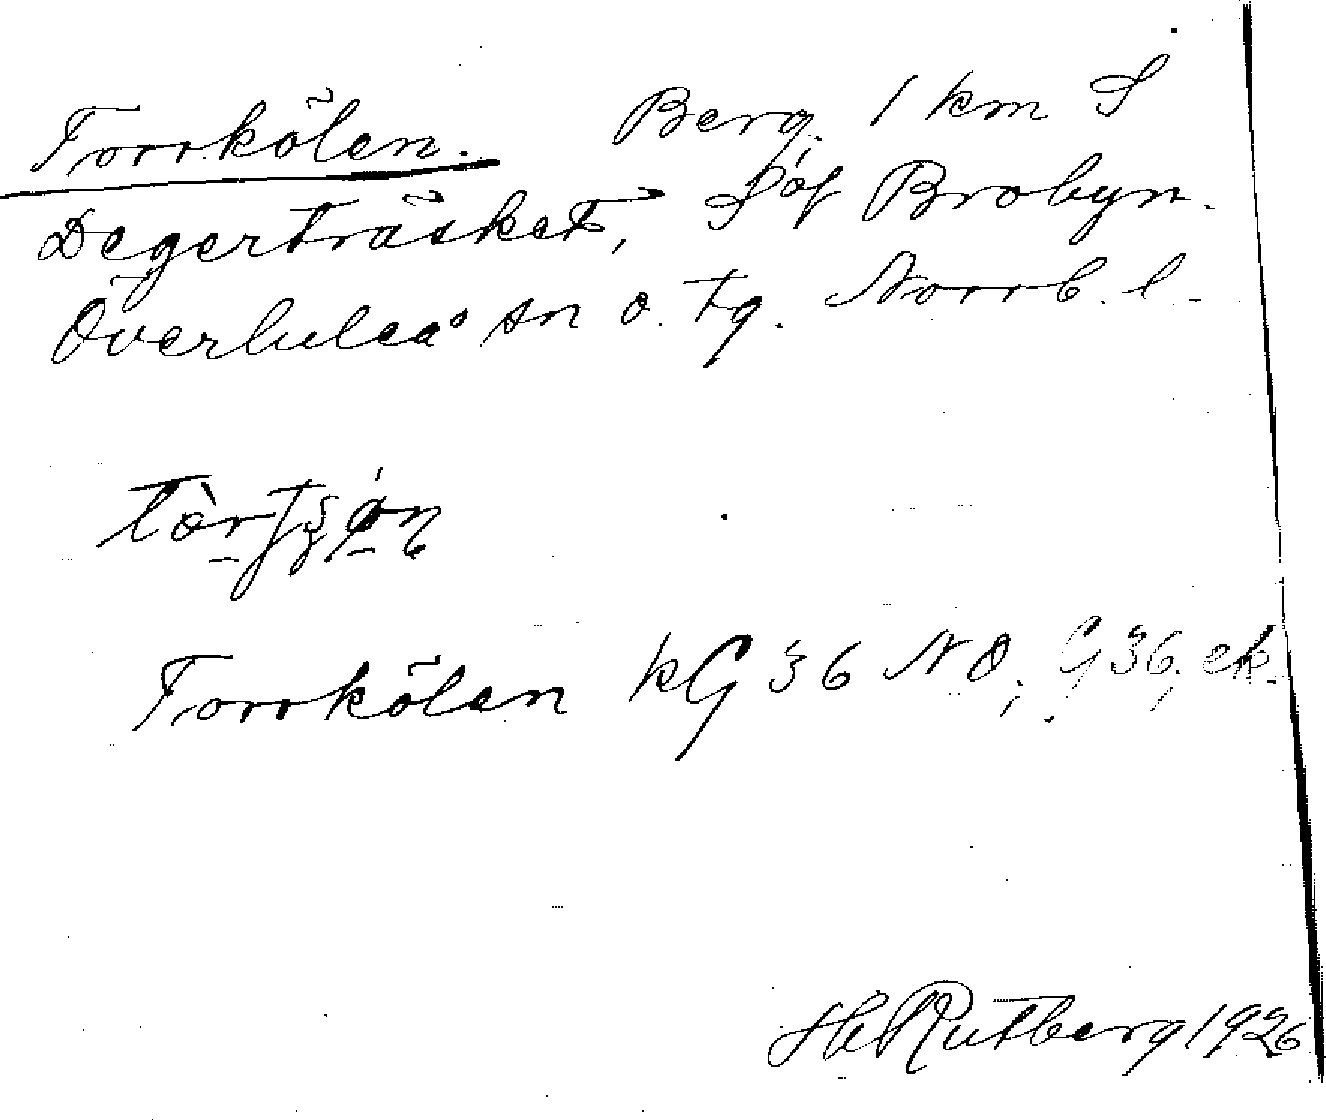 Torrkölen. Berg, 1 km S
Degerträsket, S of Brobyn.
Överluleå sn o. tg. Norrb. l.
Torrkölen kG 36 NO; G 36, ek.
H Rutberg 1926